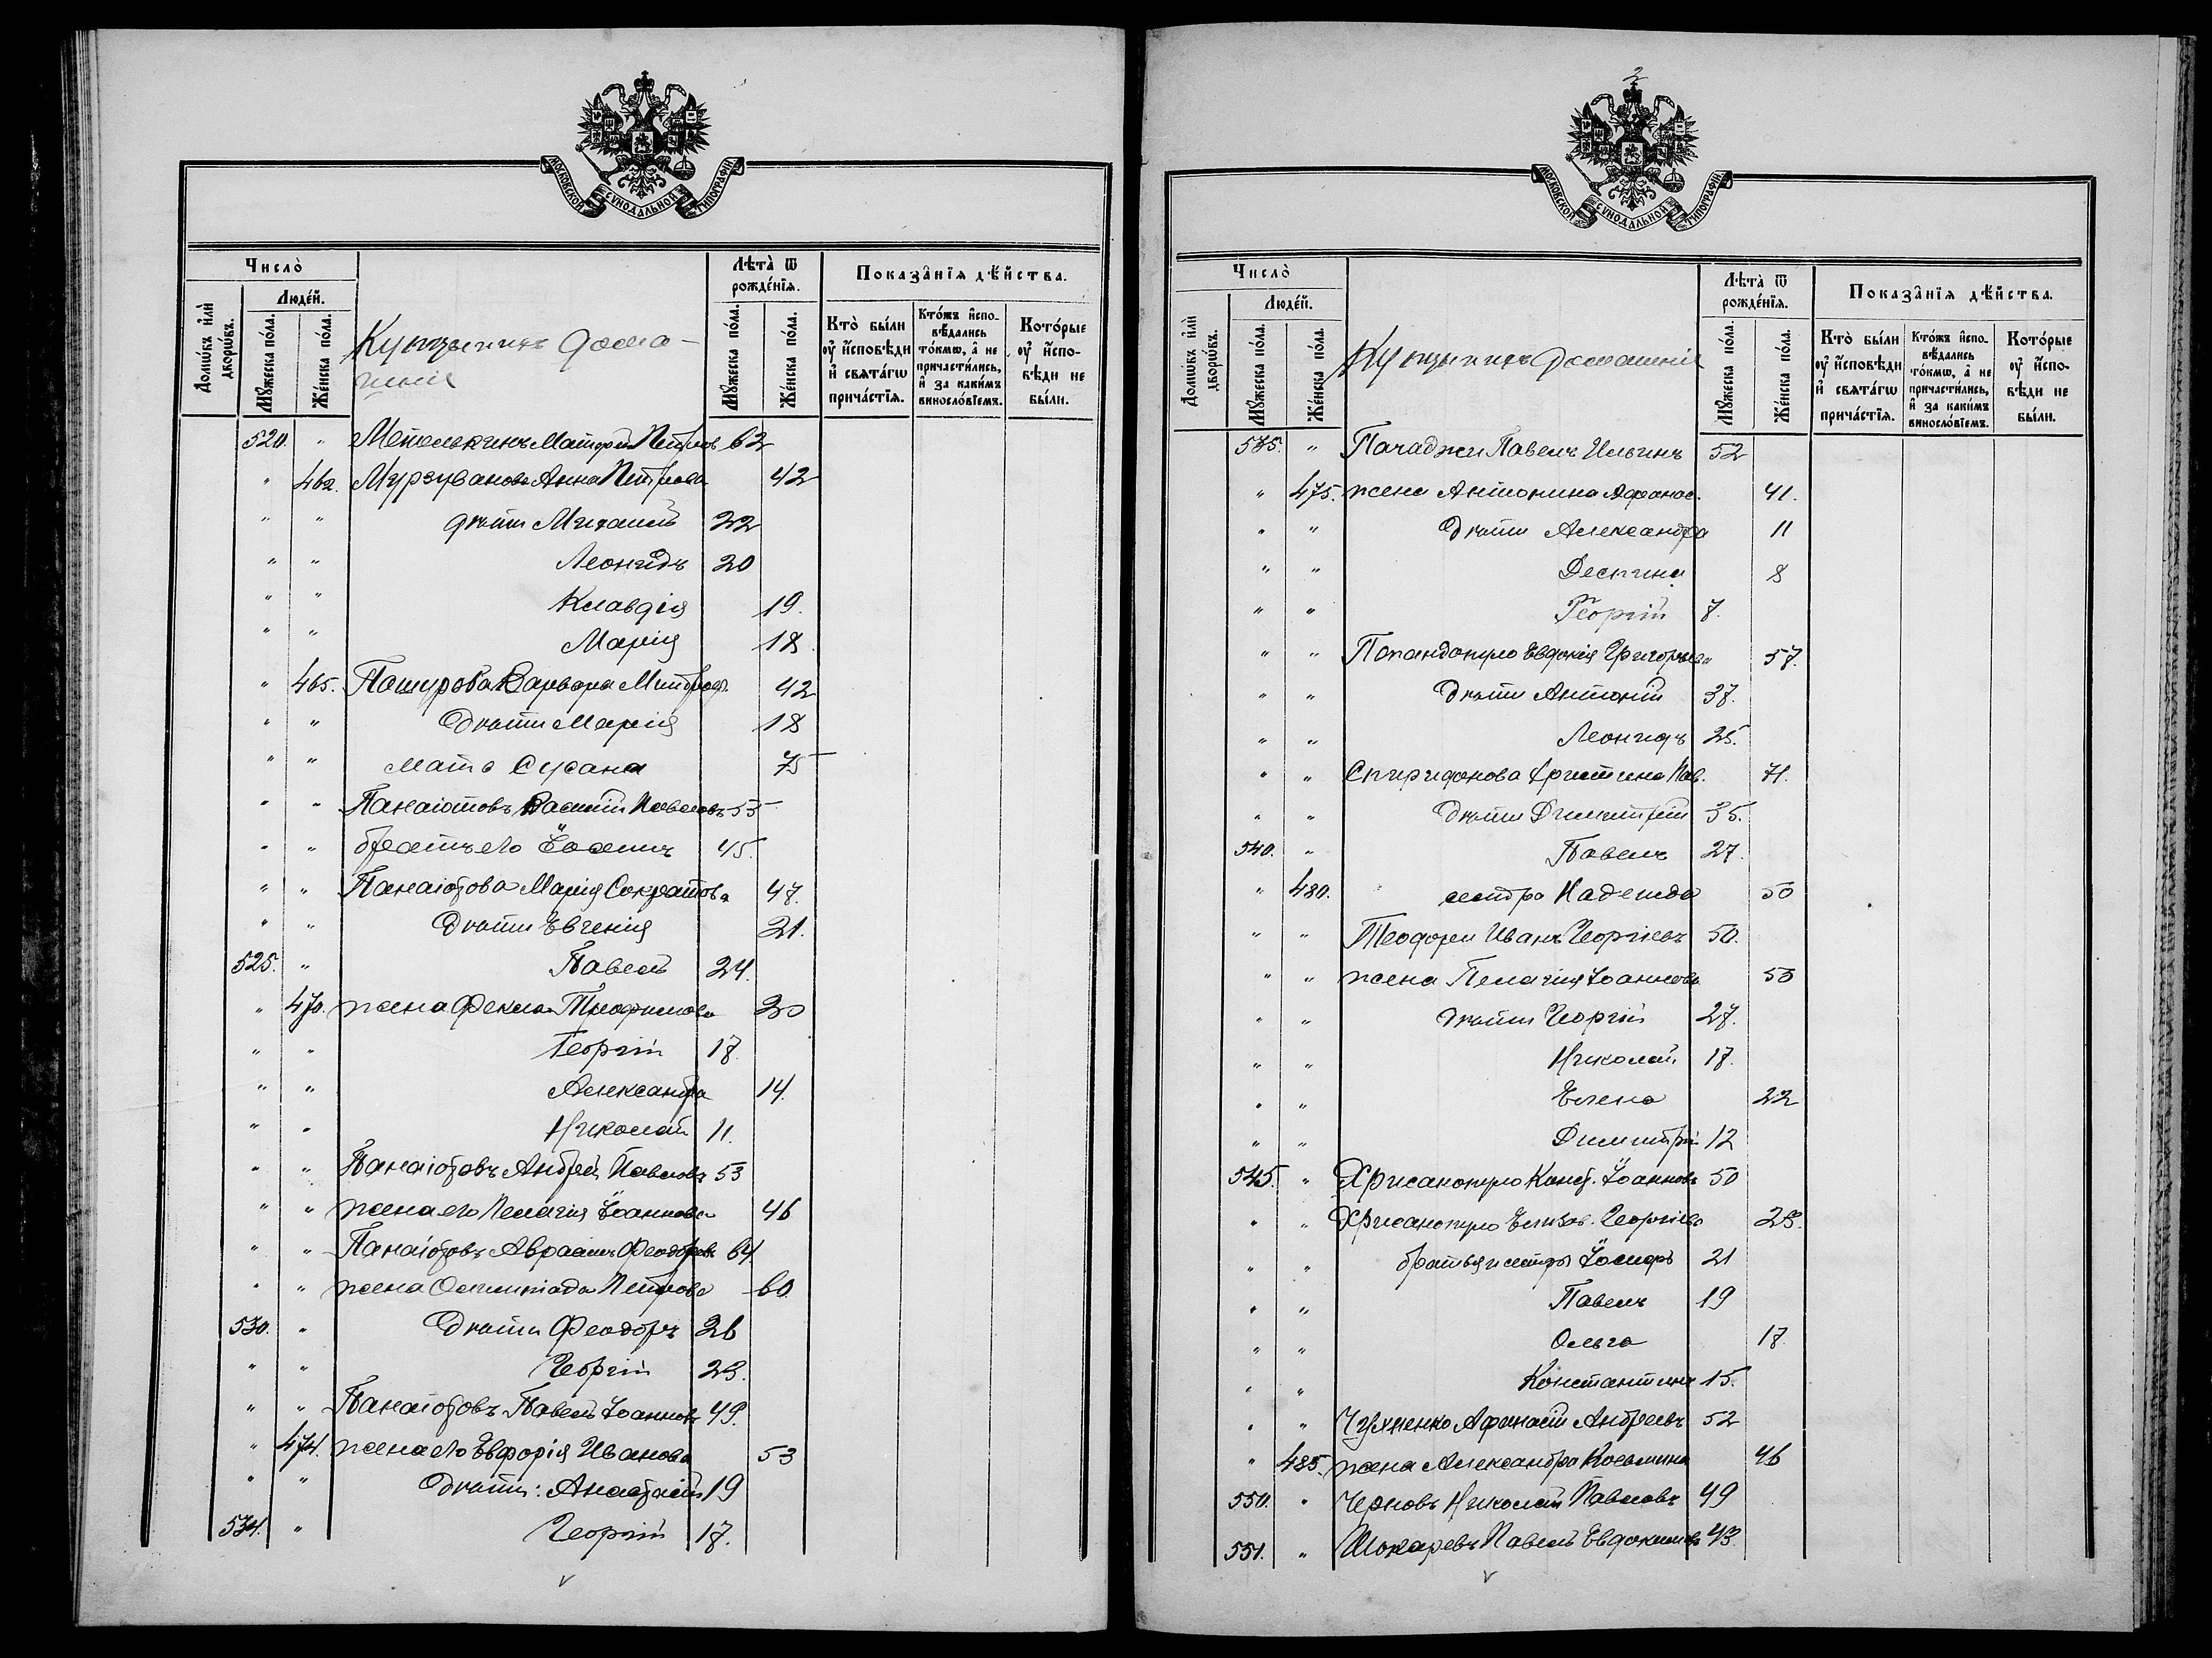 МОСКОВСКОЙ СѴНОДАЛЬНОЙ ТИПОГРАФІИ
Число̀
Людей.
Домѡвъ и҆лѝ дворѡвъ.
Мꙋжеска по́ла.
Же́нска по́ла.
Купцы и ихъ дома-
шнія
Лѣта̀ ѿ рожде́нїѧ.
Мꙋжеска по́ла.
Же́нска по́ла.
Показа̂нїѧ дѣ́йства.
Кто̀ бы́ли оу҆ и҆́сповѣди и҆ свѧта́гѡ прича́стїѧ.
Кто́жъ и҆спо-вѣ́дались то́кмѡ, а҆ не причасти́лись, и҆ за каки́мъ винослѡ́вїемъ.
Кото́рые оу҆ и҆́спо-вѣди не бы́ли.
520. " Метелькинъ Матфей Петровъ 62
" 462. Мурзуванова Анна Петрова 42
" " дѣти Михаилъ 22
" " Леонидъ 20
" " Клавдія 19.
" " Марія 18.
" 465. Пашурова Варвара Митроф. 42
" " Дѣти Марія 18
" " мать Сусана 75
" " Панаіотовъ Василій Павловъ 55
" " братъ его 45.
" " Панаіотова Марія Сократова 47.
" " Дѣти Евгенія 21.
525. " Павелъ 24.
" 470. жена Фекла 20
" " Георгій 17.
" " Александра 14.
" " Николай 11.
" " Панаіотовъ Андрей Павловъ 53
" " жена его Пелагія Іоаннова 46
" " Панаіотовъ Авраамъ Феодоровъ 64.
" " жена Олимпіада Петрова 60.
530. " Дѣти Феодоръ 26
" " Георгій 23.
" " Панаіотовъ Павелъ Іоанновъ 49.
" 474. жена его Евфорія Иванова 53
" " Дѣти: Анастасій 19
534. " Георгій 17.
2
МОСКОВСКОЙ СѴНОДАЛЬНОЙ ТИПОГРАФІИ
Число̀
Людей.
Домѡвъ и҆лѝ дворѡвъ.
Мꙋжеска по́ла.
Же́нска по́ла.
Купцы и ихъ домашнія
Лѣта̀ ѿ рожде́нїѧ.
Мꙋжеска по́ла.
Же́нска по́ла.
Показа̂нїѧ дѣ́йства.
Кто̀ бы́ли оу҆ и҆́сповѣди и҆ свѧта́гѡ прича́стїѧ.
Кто́жъ и҆спо-вѣ́дались то́кмѡ, а҆ не причасти́лись, и҆ за каки́мъ винослѡ́вїемъ.
Кото́рые оу҆ и҆́спо-вѣди не бы́ли.
535. " Пачаджи Павелъ Ильинъ 52
" 475. жена Антонина Афанас. 41.
" " Дѣти Александра 11
" " Деспина 8
" " Георгій 7.
" " Попандопуло Евдокія Григорьева 57.
" " Дѣти Антоній 37.
" " Леонидъ 25.
" " Спиридонова Христина Пав. 71.
" " Дѣти Димитрій 35.
540. " Павелъ 27.
" 480. сестра Надежда 50
" " Теодори Иванъ Георгіевъ 50.
" " жена Пелагія Іоаннова 53
" " Дѣти Георгій 27.
" " Николай 17.
" " Елена 22
" " Димитрій 12
545. " Хрисанопуло Конст. Іоанновъ 50
" " Хрисанопуло Елизав. Георгіева 23.
" " братья и сестры Іосифъ 21
" " Павелъ 19
" " Ольга 17
" " Константинъ 15.
" " Чухненко Афанасій Андреевъ 52
" 485. жена Александра Косьмина 46
550. " Черновъ Николай Павловъ 49
551. " Шокаревъ Павелъ Евдокимовъ 43.